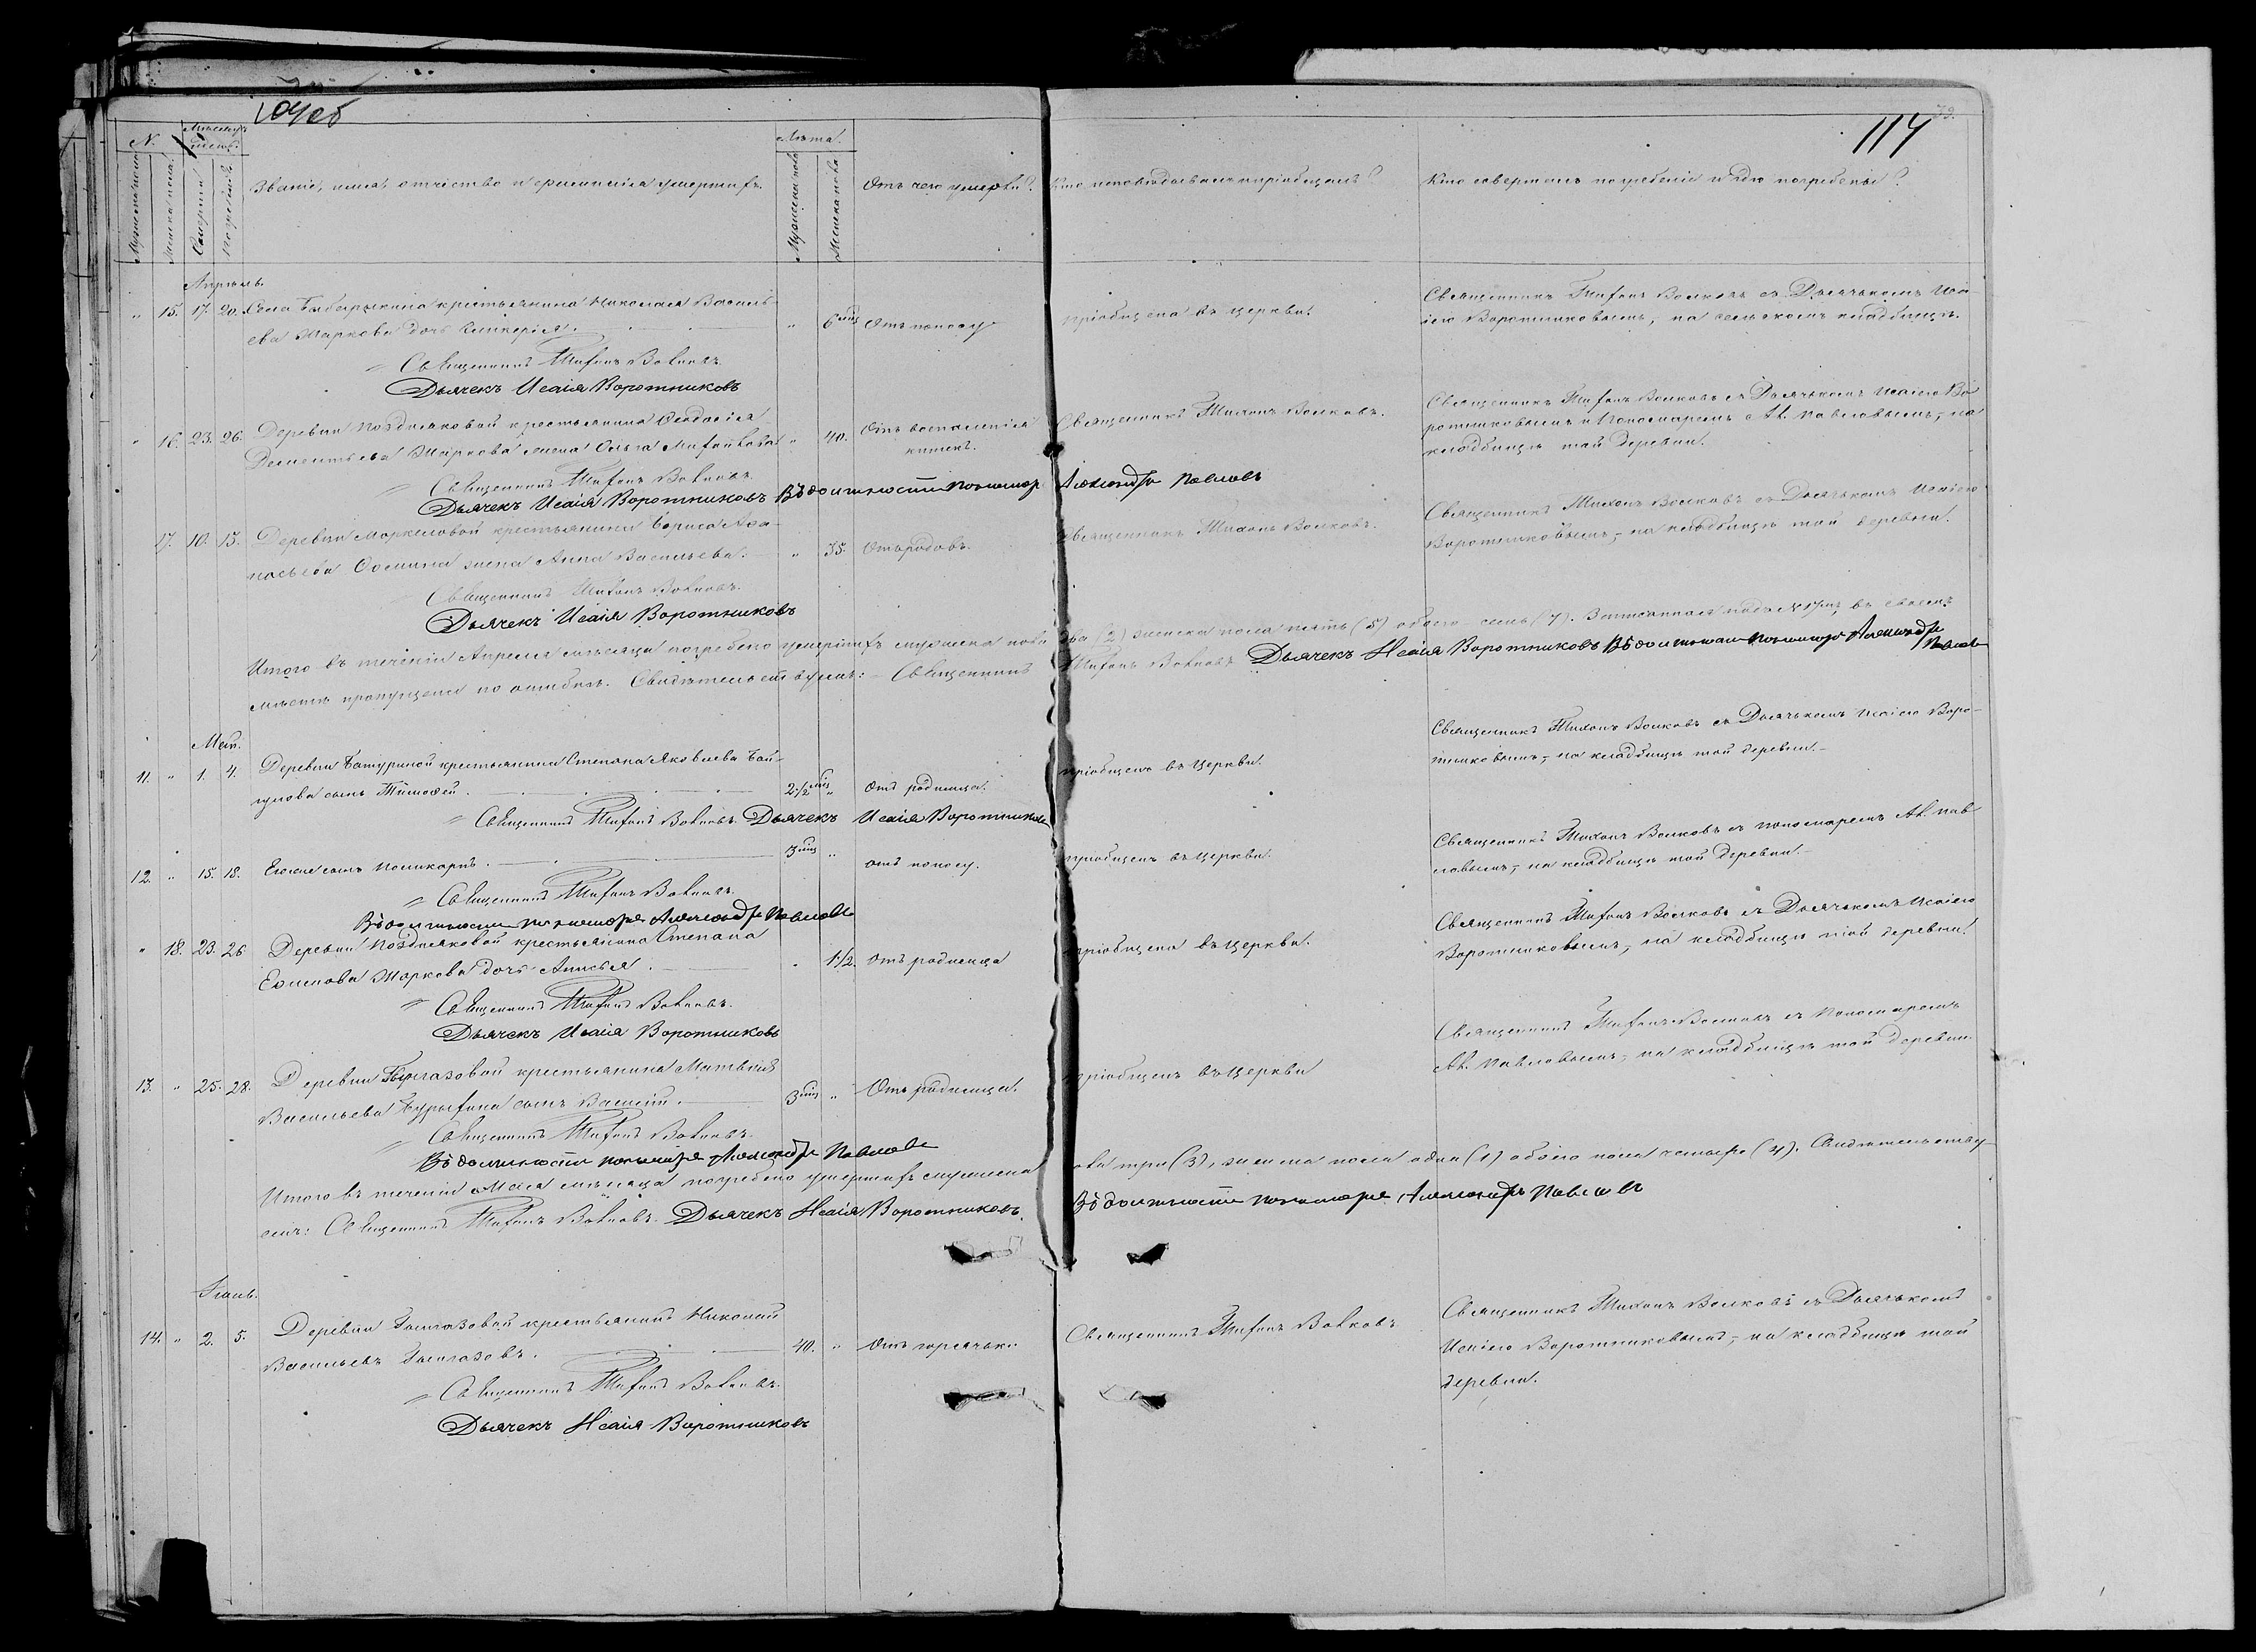 114
N.
Званіе, имя, отчество и фамилія умершихъ.
Лѣта.
Мужеска пола
Женска пола
Отъ чего умерли?
Кто исповѣдывалъ и пріобщалъ?
Кто совершалъ погребеніе и гдѣ погребены?
Апрѣль.
" 15. 17. 20. Села крестьянина Николая Василь-
ева Маркова дочь " 6 мѣц Отъ поносу пріобщена въ церкви.
Священникъ Тихонъ Волковъ съ Дьячькомъ Иса-
іею Воротниковымъ, на сельскомъ кладбищѣ.
Священникъ Тихонъ Волковъ.
Дьячекъ Исаія Воротниковъ
" 16. 23. 26. Деревни Поздняковой крестьянина Ѳеодосія
Дементьева Маркова жена Ольга " 40. Отъ воспаленія
кишекъ.
Священникъ Тихонъ Волковъ.
Священникъ Тихонъ Волковъ съ Дьячькомъ Исаіею Во-
ротниковымъ и Пономаремъ Ал. Павловымъ, на
кладбищѣ той деревни.
Священникъ Тихонъ Волковъ.
Дьячекъ Исаія Воротниковъ Въ должности пономаря Александръ Павловъ
17. 10. 15. Деревни Маркеловой крестьянина Бориса Аѳа-
насьева Ѳомина жена Анна Васильева. " 35. Отъ родовъ.
Священникъ Тихонъ Волковъ.
Священникъ Тихонъ Волковъ съ Дьячькомъ Исаіею
Воротниковымъ, на кладбищѣ той деревни.
Священникъ Тихонъ Волковъ.
Дьячекъ Исаія Воротниковъ
Итого въ теченіи Апреля мѣсяца погребено умершихъ мужеска пола два (2) женска пола пять (5) обоего семь (7). Записанная подъ № 17мъ въ своемъ
мѣстѣ пропущена по ошибкѣ. Свидѣтельствуемъ: Священникъ Тихонъ Волковъ Дьячекъ Исаія Воротниковъ Въ должности пономаря Александръ
Павловъ
Май.
11. " 1. 4. Деревни Батуриной крестьянина Степана Яковлева
сынъ Тимоѳей. 2 1/2 мѣц " Отъ родимца. пріобщенъ въ Церкви.
Священникъ Тихонъ Волковъ съ Дьячькомъ Исаіею Воро-
тниковымъ, на кладбищѣ той деревни.
Священникъ Тихонъ Волковъ. Дьячекъ Исаія Воротниковъ
12. " 15. 18. сынъ Поликарпъ. 3 мѣц " отъ поносу. пріобщенъ въ Церкви.
Священникъ Тихонъ Волковъ съ пономаремъ Ал. Пав-
ловымъ, на кладбищѣ той деревни.
Священникъ Тихонъ Волковъ.
Въ должности пономаря Александръ Павловъ
" 18. 23. 26 Деревни Поздняковой крестьянина Степана
Маркова дочь Анисья. " 1 1/2. отъ родимца пріобщена въ Церкви.
Священникъ Тихонъ Волковъ съ Дьячькомъ Исаіею
Воротниковымъ, на кладбищѣ той деревни.
Священникъ Тихонъ Волковъ.
Дьячекъ Исаія Воротниковъ
13. " 25. 28. Деревни крестьянина Матвѣя
Васильева сынъ Василій. 3 мѣц " Отъ родимца. пріобщенъ въ Церкви
Священникъ Тихонъ Волковъ съ Пономаремъ
Ал. Павловымъ, на кладбищѣ той деревни.
Священникъ Тихонъ Волковъ.
Въ должности пономаря Александръ Павловъ
Итого въ теченіи Мая мѣсяца погребено умершихъ мужеска пола три (3), женска пола одна (1) обоего пола четыре (4). Свидѣтельству-
емъ: Священникъ Тихонъ Волковъ. Дьячекъ Исаія Воротниковъ. Въ должности пономаря Александръ Павловъ
Іюнь.
14. " 2. 5. Деревни крестьянинъ Николай
Васильевъ 40. " Отъ горячьки Священникъ Тихонъ Волковъ
Священникъ Тихонъ Волковъ съ Дьячькомъ
Исаіею Воротниковымъ, на кладбищѣ той
деревни.
Священникъ Тихонъ Волковъ.
Дьячекъ Исаія Воротниковъ